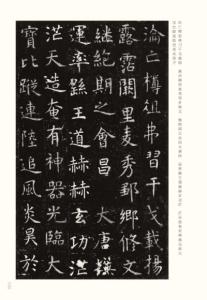 淪亡樽俎弗習干戈載揚
露霑闕里麥秀鄒鄉修文
繼絕期之會昌 大唐撫
運率繇王道赫赫玄功茫
茫天造奄有神器光臨大
寶比蹤連陸追風炎昊於